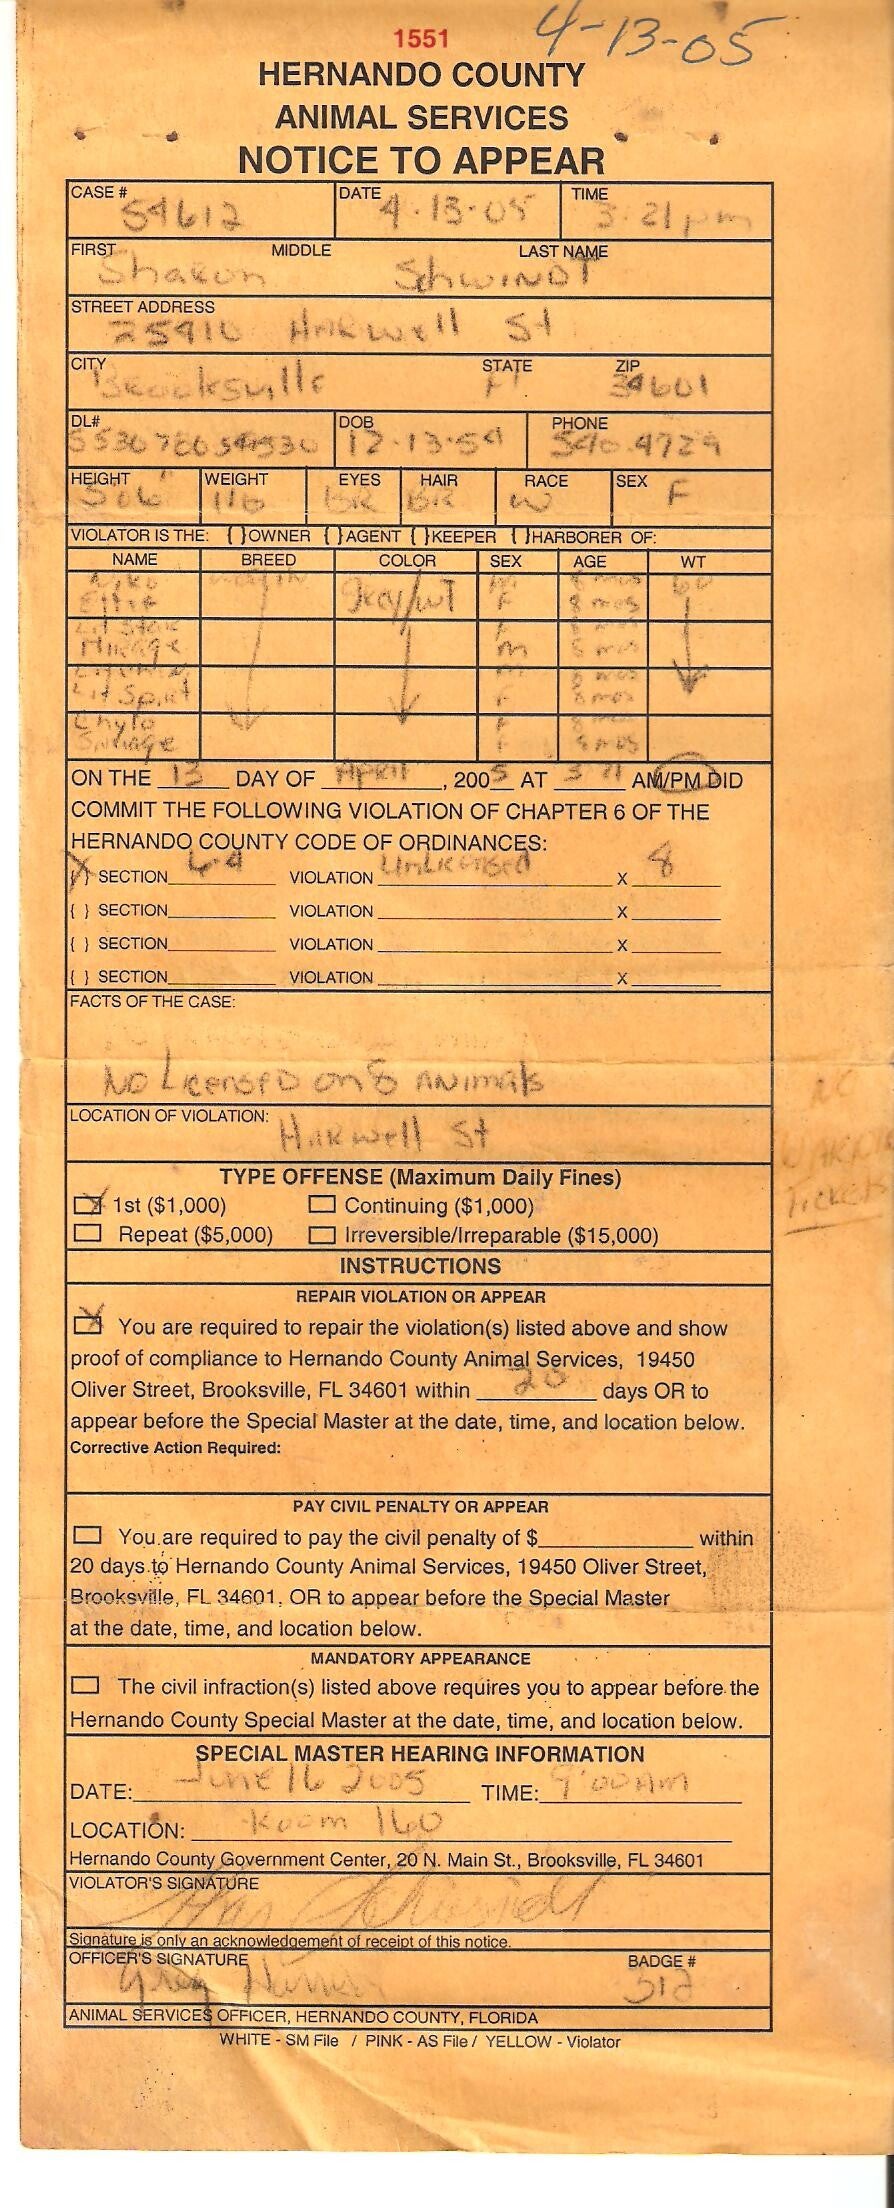 4-13-05
1551
HERNANDO COUNTY
ANIMAL SERVICES
NOTICE TO APPEAR
CASE # 54612 DATE 4-13-05 TIME 3:21pm
FIRST MIDDLE LAST NAME
Sharon Schwindt
STREET ADDRESS
25410 Harwell St
CITY STATE ZIP
Brooksville Fl 34601
DL# DOB PHONE
12-13-54 540-4729
HEIGHT WEIGHT EYES HAIR RACE SEX
506" 116 BR BR W F
VIOLATOR IS THE: { }OWNER { }AGENT { }KEEPER { }HARBORER OF:
NAME BREED COLOR SEX AGE WT
Niko M 8 mos 60
Effie grey/WT F 8 mos
Lit Star F 8 mos
Mirage M 8 mos
M 8 mos
Lit Spirit F 8 mos
F 8 mos
F 8 mos
ON THE 13 DAY OF April, 2005 AT 3:21 AM/PM DID
COMMIT THE FOLLOWING VIOLATION OF CHAPTER 6 OF THE
HERNANDO COUNTY CODE OF ORDINANCES:
{X} SECTION 6-4 VIOLATION Unlicensed X 8
{ } SECTION VIOLATION X
{ } SECTION VIOLATION X
{ } SECTION VIOLATION X
FACTS OF THE CASE:
NO LICENSED on 8 ANIMALS
LOCATION OF VIOLATION:
Harwell St
NO
WARNING
Tickets
TYPE OFFENSE (Maximum Daily Fines)
X 1st ($1,000) Continuing ($1,000)
Repeat ($5,000) Irreversible/Irreparable ($15,000)
INSTRUCTIONS
REPAIR VIOLATION OR APPEAR
X You are required to repair the violation(s) listed above and show
proof of compliance to Hernando County Animal Services, 19450
Oliver Street, Brooksville, FL 34601 within 20 days OR to
appear before the Special Master at the date, time, and location below.
Corrective Action Required:
PAY CIVIL PENALTY OR APPEAR
You are required to pay the civil penalty of $ within
20 days to Hernando County Animal Services, 19450 Oliver Street,
Brooksville, FL 34601, OR to appear before the Special Master
at the date, time, and location below.
MANDATORY APPEARANCE
The civil infraction(s) listed above requires you to appear before the
Hernando County Special Master at the date, time, and location below.
SPECIAL MASTER HEARING INFORMATION
DATE: June 16 2005 TIME: 9:00AM
LOCATION: Room 160
Hernando County Government Center, 20 N. Main St., Brooksville, FL 34601
VIOLATOR'S SIGNATURE
Signature is only an acknowledgement of receipt of this notice.
OFFICER'S SIGNATURE BADGE #
Greg 512
ANIMAL SERVICES OFFICER, HERNANDO COUNTY, FLORIDA
WHITE - SM File / PINK - AS File / YELLOW - Violator